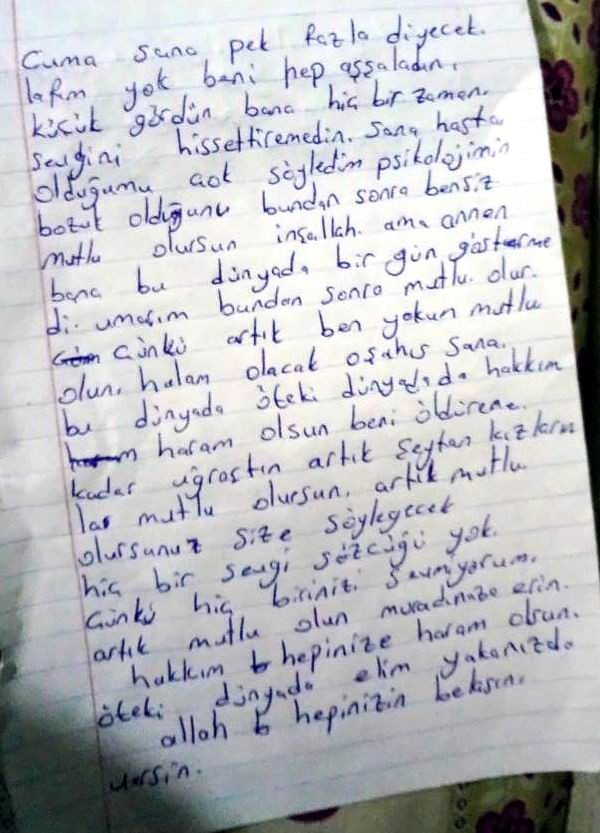 Cuma sana pek fazla diyecek.
lafım yok beni hep aşşaladın,
küçük gördün bana hiç bir zaman.
sevgini hissettiremedin. Sana hasta
olduğumu çok söyledim psikolojimin
bozuk olduğunu bundan sonra bensiz
mutlu olursun inşallah. ama annen
bana bu dünyada bir gün gösterme
di. umarım bundan sonra mutlu olur.
Çünkü artık ben yokun mutlu
olun, halam olacak oşahıs sana.
bu dünyada öteki dünyadada hakkım
haram olsun beni öldürene.
kadar uğraştın artık şeytan kızların
la mutlu olursun. artık mutlu
olursunuz size söyleyecek
hiç bir sevgi sözcüğü yok.
Çünkü hiç birinizi sevmiyorum.
artık mutlu olun muradınıza erin.
hakkım hepinize haram olsun.
öteki dünyada elim yakanızda
allah hepinizin belasını
versin.